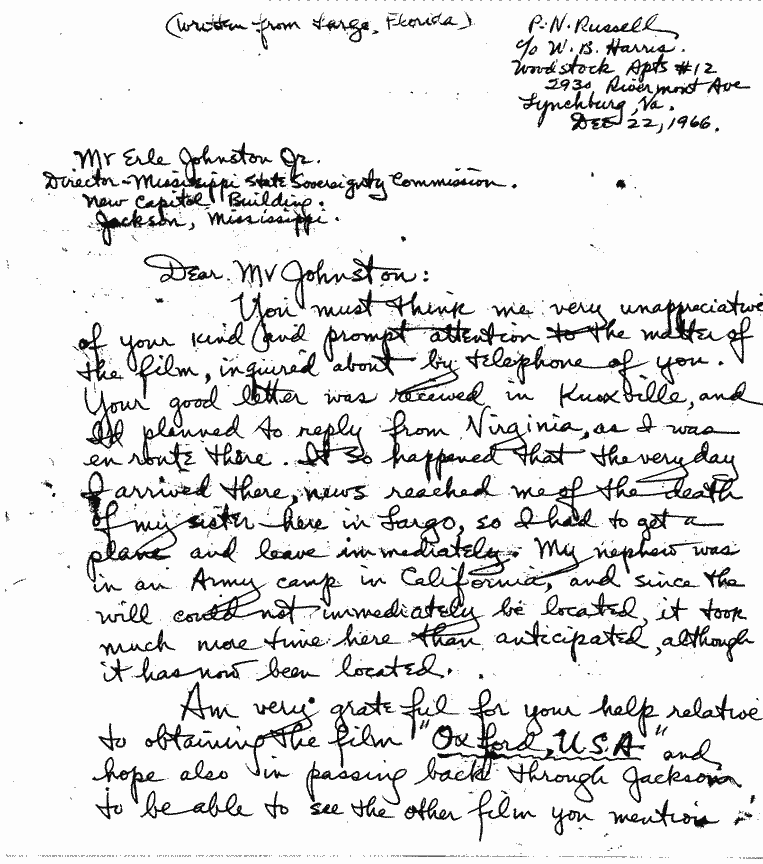 (Written from Largo, Florida)
P. N. Russell
c/o W. B. Harris.
Woodstock Apts #12
2930 Rivermont Ave
Lynchburg, Va.
Dec 22, 1966.
Mr Erle Johnston Jr.
Director-Mississippi State Sovereignty Commission.
New Capitol Building.
Jackson, Mississippi.
Dear Mr Johnston:
You must think me very unappreciative
of your kind and prompt attention to the matter of
the film, inquired about by telephone of you.
Your good letter was received in Knoxville, and
I'd planned to reply from Virginia, as I was
en route there. It so happened that the very day
I arrived there, news reached me of the death
of my sister here in Largo, so I had to get a
plane and leave immediately. My nephew was
in an Army camp in California, and since the
will could not immediately be located, it took
much more time here than anticipated, although
it has now been located.
Am very grateful for your help relative
to obtaining the film "Oxford, U.S.A" and
hope also in passing back through Jackson
to be able to see the other film you mention